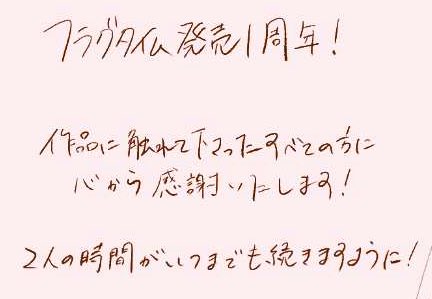 フラグタイム発売1周年!
作品に触れて下さったすべての方に
心から感謝いたします!
2人の時間がいつまでも続きますように!